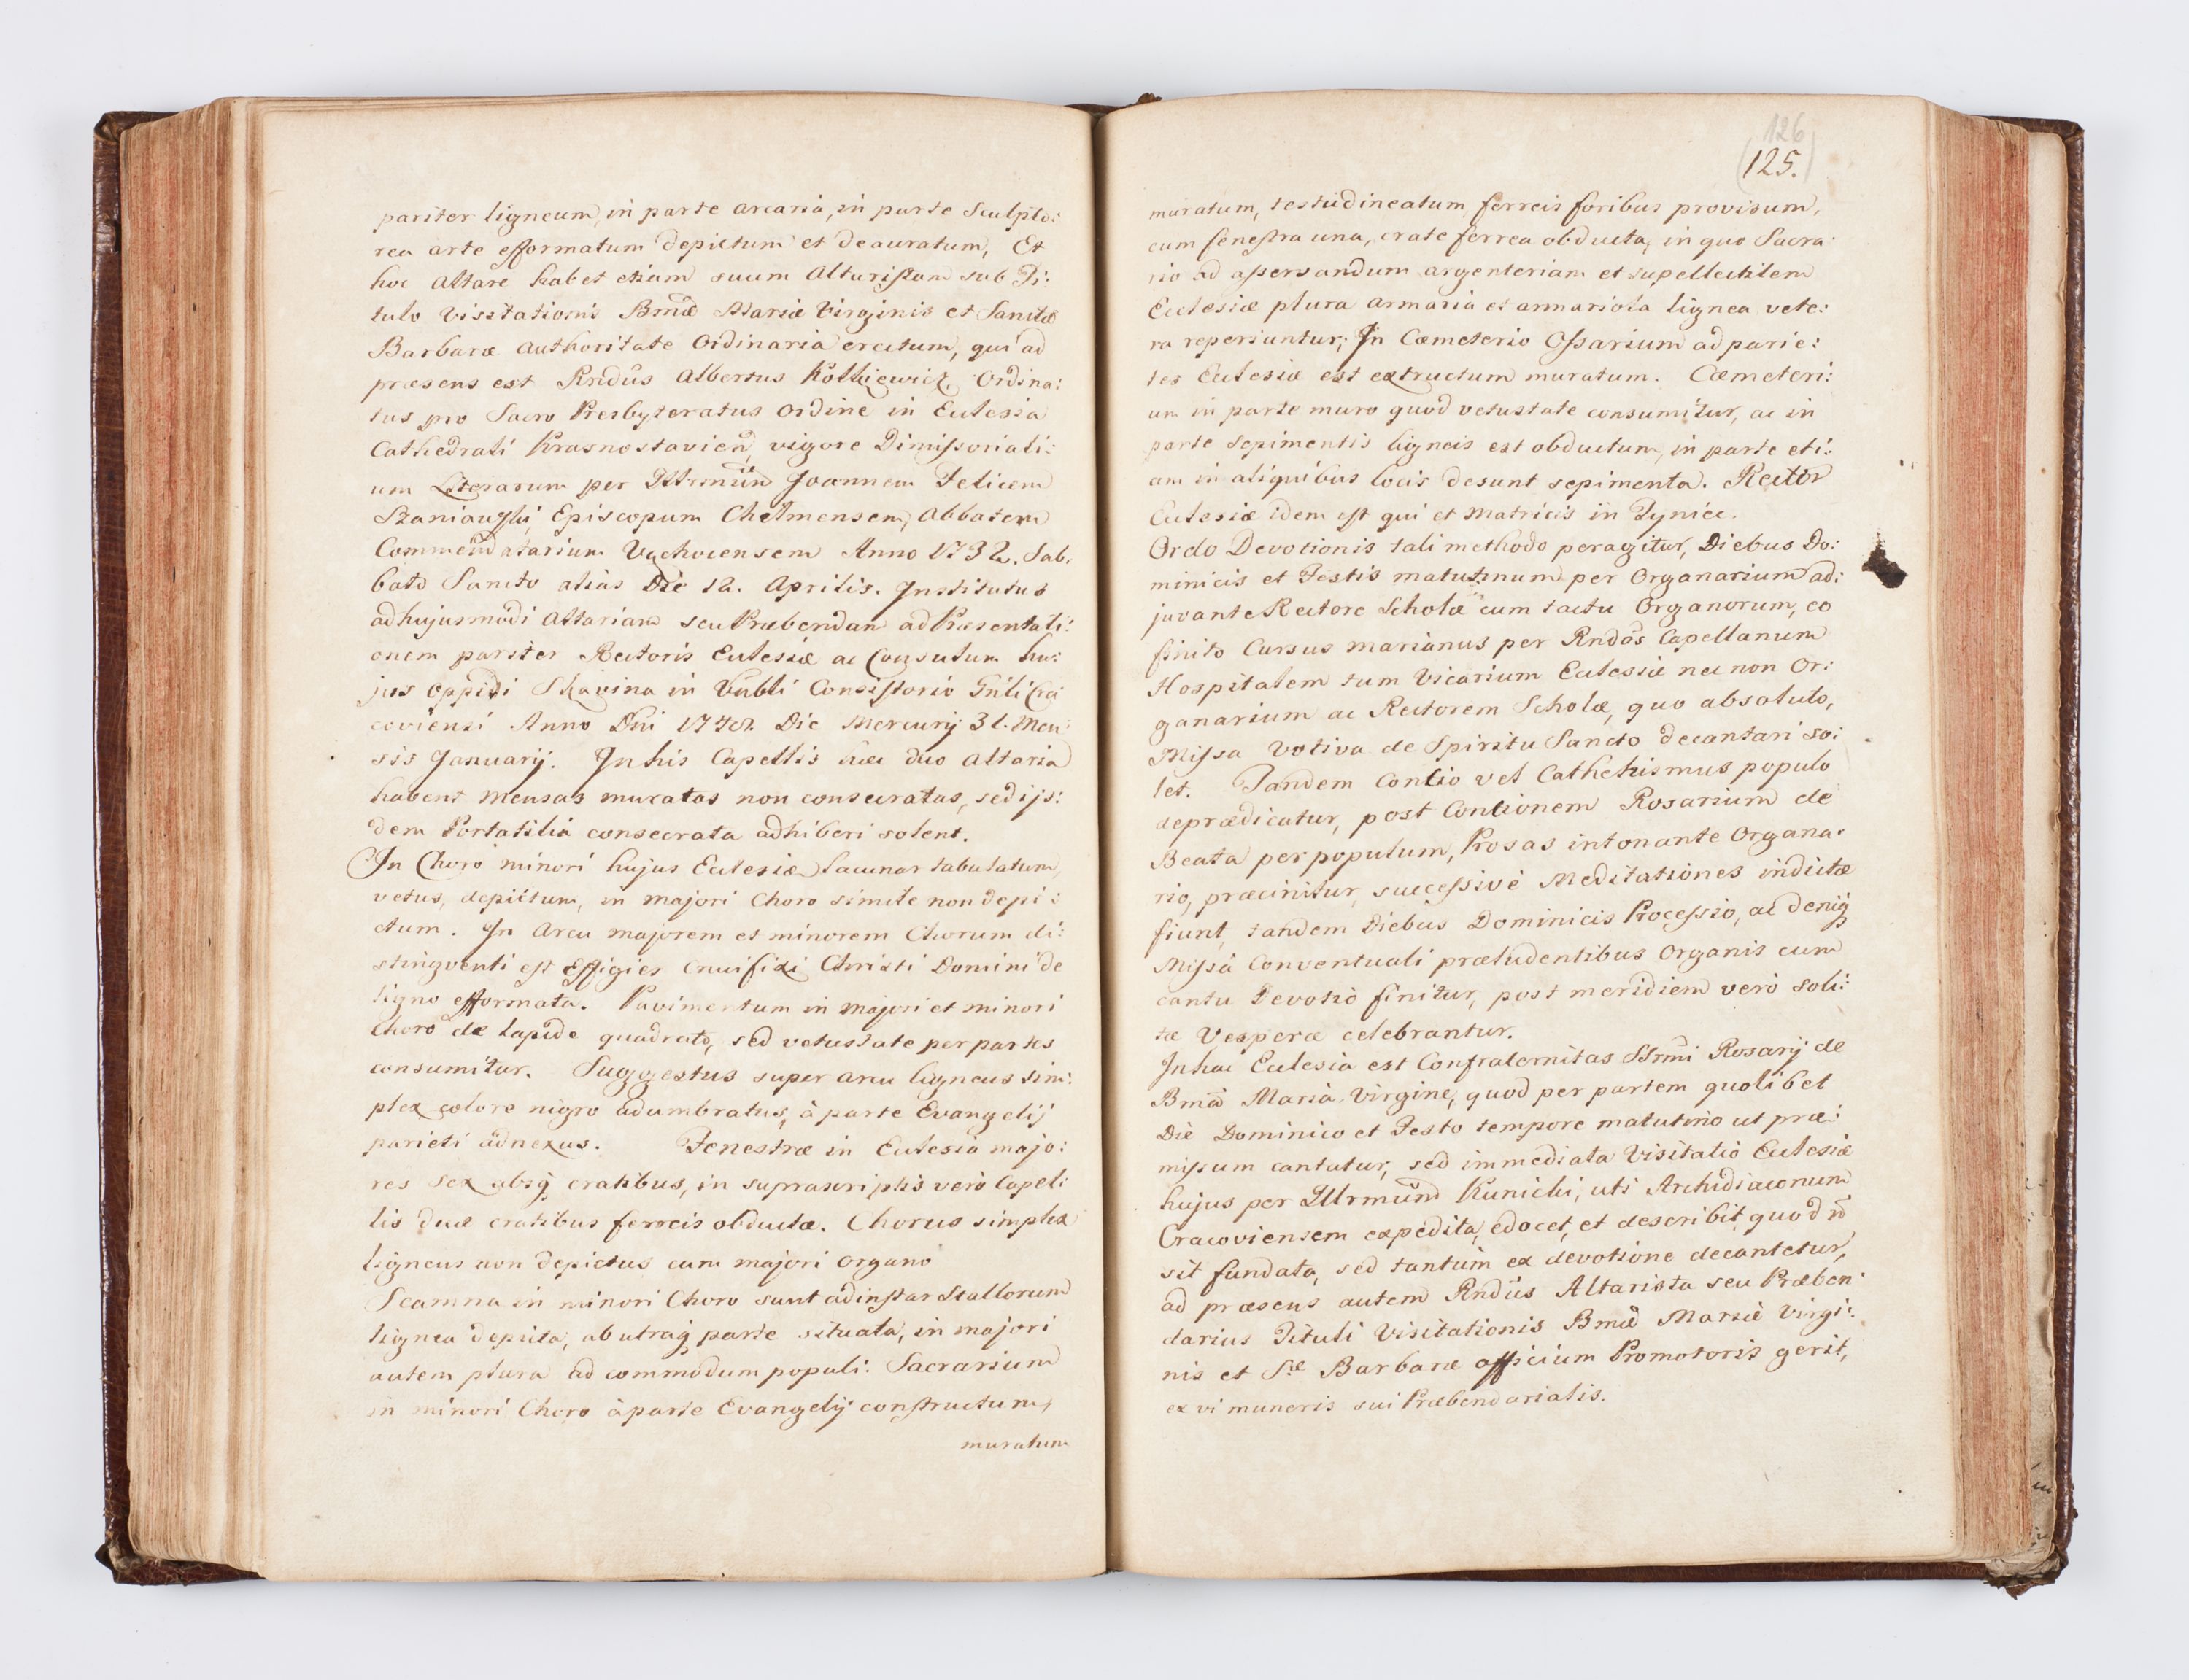 pariter ligneum, in parte arcaria, in parte Sculpto:
rea arte efformatum depictum et deauratum, Et
hoc Altare habet etiam suum Altaristam sub Ti:
tulo Visitationis Bmæ Mariæ Virginis et Sanctæ
Barbaræ Authoritate Ordinaria erectum, qui ad
præsens est Rndus Albertus Ordina:
tus pro Sacro Presbyteratus Ordine in Ecclesia
Cathedrali Krasnostavien, vigore Dimissoriali:
um Literarum per Illrmum Joannem Felicem
Szaniawski Episcopum Chelmensem, Abbatem
Commendatarium Vachocensem Anno 1732. Sab,
bato Sancto alias Die 12. Aprilis. Institutus
ad hujusmodi Altariam seu Præbendam ad Præsentati:
onem pariter Rectoris Ecclesiæ ac Consulum hu:
jus oppidi Skavina in Consistorio Gnli Cra
coviensi Anno Dni Die Mercurij 31. Men
sis Januarij. In his Capellis hæc duo Altaria
habent Mensas muratas non consecratas, sed ijs:
dem Portatilia consecrata adhiberi solent.
In Choro minori hujus Ecclesiæ lacunar tabulatum,
vetus, depictum, in majori Choro simile non depi:
ctum. In Arcu majorem et minorem Chorum di:
stingventi est Effigies Crucifixi Christi Domini de
ligno efformata. Pavimentum in majori et minori
Choro de lapide quadrato, sed vetustate per partes
consumitur. Suggestus super arcu ligneus sim:
plex colore nigro adumbratus, à parte Evangelij
parieti adnexus. Fenestræ in Ecclesia majo:
res sex absq cratibus, in suprascriptis verò Capel:
lis duæ cratibus ferreis obductæ. Chorus simplex
ligneus non depictus cum majori organo
Scamna in minori Choro sunt ad instar Stallorum
lignea depicta, ab utraq parte situata, in majori
autem plura ad commodum populi: Sacrarium
in minori Choro à parte Evangelij constructum,
muratum
126
(125.)
muratum, testudineatum ferreis foribus provisum,
cum fenestra una, crate ferrea obducta, in quo Sacra:
rio ad asservandum argenteriam et supellectilem
Ecclesiæ plura armaria et armariola lignea vete:
ra reperiuntur; In Cæmeterio Ossarium ad parie:
tes Ecclesiæ est extructum muratum. Cæmeteri:
um in parte muro quod vetustate consumitur, ac in
parte sepimentis ligneis est obductum, in parte eti:
am in aliquibus locis desunt sepimenta. Rector
Ecclesiæ idem est qui et Matricis in Tyniec.
Ordo Devotionis tali methodo peragitur, Diebus Do:
minicis et Festis matutinum per Organarium ad:
juvante Rectore Scholæ cum tactu Organorum, eo
finito Cursus marianus per Rndos Capellanum
Hospitalem tum Vicarium Ecclesiæ nec non Or:
ganarium ac Rectorem Scholæ, quo absoluto,
Missa Votiva de Spiritu Sancto decantari so:
let. Tandem Concio vel Cathehismus populo
deprædicatur, post Concionem Rosarium de
Beata per populum, Prosas intonante Organa:
rio, præcinitur, successivè Meditationes indictæ
fiunt, tandem Diebus Dominicis Processio, ac deniq
Missa Conventuali præludentibus Organis cum
cantu Devotio finitur, post meridiem verò soli:
tæ Vesperæ celebrantur.
In hac Ecclesia est Confraternitas SSrmi Rosarij de
Bma Maria Virgine, quod per partem quolibet
Die Dominico et Festo tempore matutino ut præ:
missum cantatur, sed immediata Visitatio Ecclesiæ
hujus per Illrmum Kunicki, uti Archidiaconum
Cracoviensem expedita, edocet, et describit, quod n
sit fundata, sed tantum ex devotione decantetur,
ad præsens autem Rndus Altarista seu Præben:
darius Tituli Visitationis Bmæ Mariæ Virgi:
nis et Sæ Barbaræ officium Promotoris gerit,
ex vi muneris sui Præbendarialis.